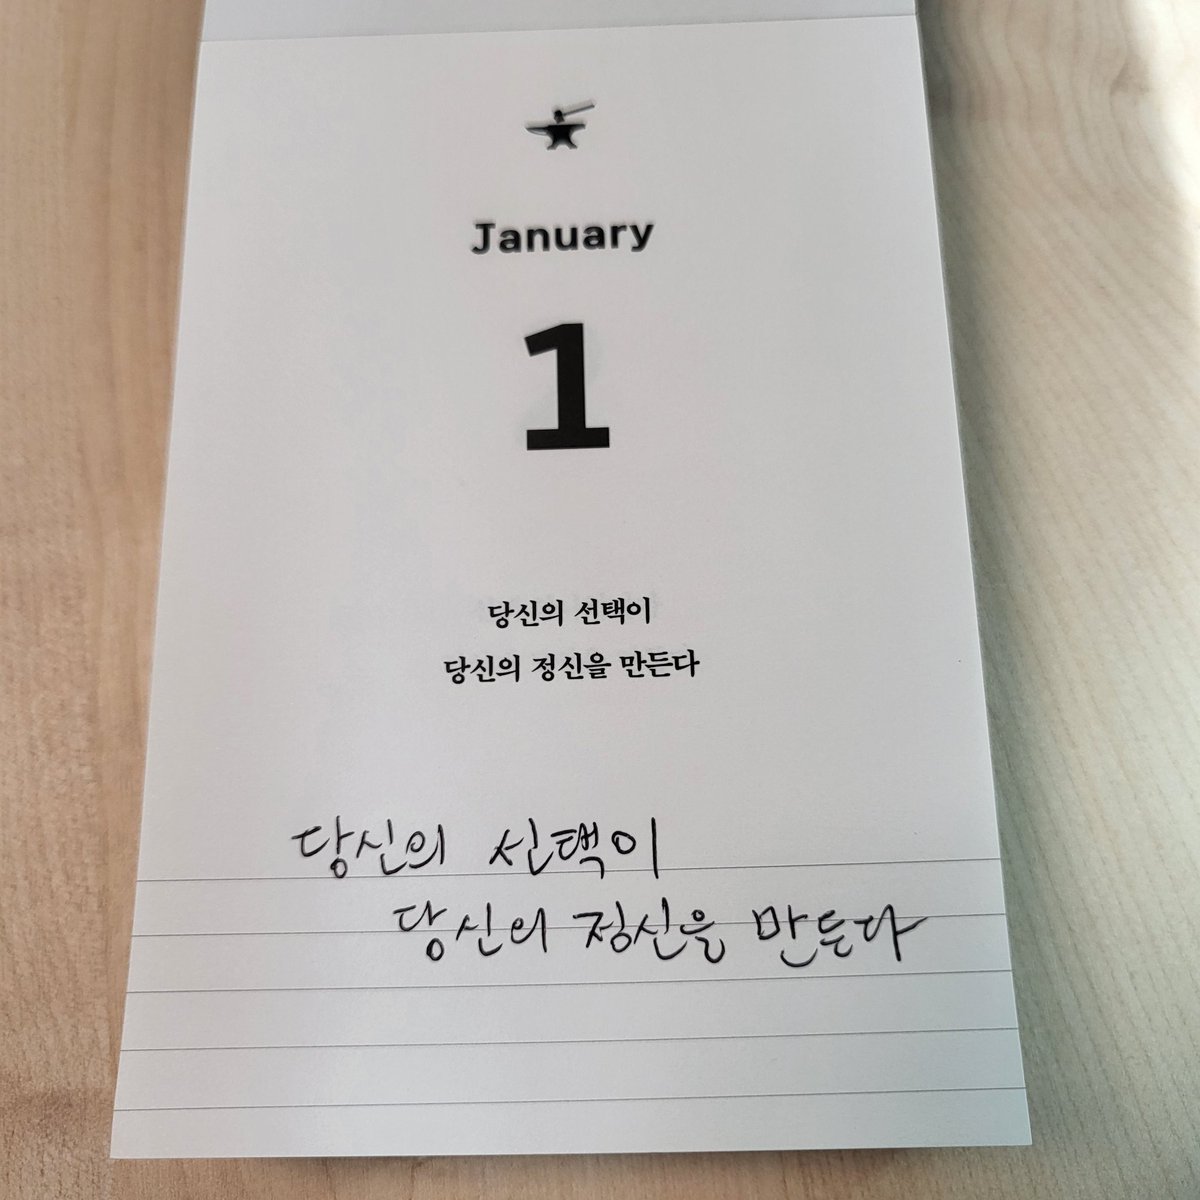 January
1
당신의 선택이
당신의 정신을 만든다
당신의 선택이
당신의 정신을 만든다